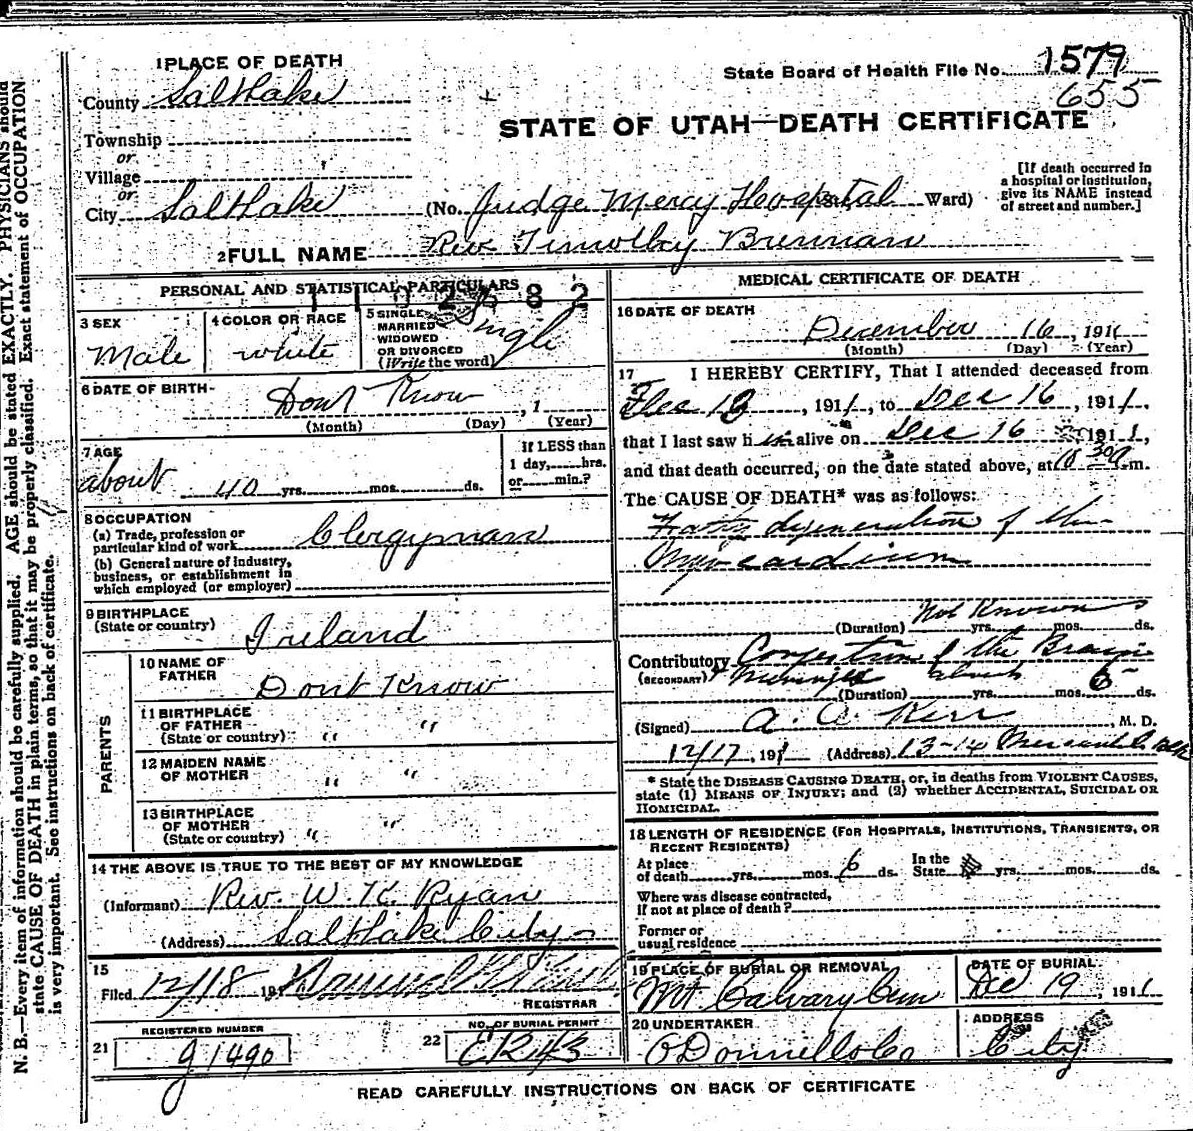 1 PLACE OF DEATH
County Salt Lake
Township
or
Village
or
City Salt Lake (No. Judge Mercy Hospital Ward)
State Board of Health File No. 1579
655
STATE OF UTAH—DEATH CERTIFICATE
[If death occurred in
a hospital or institution,
give its NAME instead
of street and number.]
2 FULL NAME Rev Timothy Brennan
PERSONAL AND STATISTICAL PARTICULARS
3 SEX
Male
4 COLOR OR RACE
white
5 SINGLE
MARRIED
WIDOWED
OR DIVORCED
(Write the word)
Single
6 DATE OF BIRTH
Dont Know, 1
(Month) (Day) (Year)
7 AGE
about 40 yrs. mos. ds.
If LESS than
1 day, hrs.
or min.?
8 OCCUPATION
(a) Trade, profession or
particular kind of work Clergyman
(b) General nature of industry,
business, or establishment in
which employed (or employer)
9 BIRTHPLACE
(State or country) Ireland
PARENTS
10 NAME OF
FATHER Dont Know
11 BIRTHPLACE
OF FATHER
(State or country) " "
12 MAIDEN NAME
OF MOTHER " "
13 BIRTHPLACE
OF MOTHER
(State or country) " "
14 THE ABOVE IS TRUE TO THE BEST OF MY KNOWLEDGE
(Informant) Rev. W. K. Ryan
(Address) Salt Lake City
15
Filed 12/18 191
REGISTRAR
REGISTERED NUMBER
21 J1490
NO. OF BURIAL PERMIT
22 E1243
MEDICAL CERTIFICATE OF DEATH
16 DATE OF DEATH
December 16, 1911
(Month) (Day) (Year)
17 I HEREBY CERTIFY, That I attended deceased from
Dec 13, 1911, to Dec 16, 1911,
that I last saw him alive on Dec 16 1911,
and that death occurred, on the date stated above, at 10 30 a m.
The CAUSE OF DEATH* was as follows:
Fatty degeneration of the
Myocardium
Not Known
(Duration) yrs. mos. ds.
Contributory Congestion of the Brain
(SECONDARY) & Meninges about
(Duration) yrs. mos. 6 ds.
(Signed) A. A. Kerr, M. D.
12/17, 191 1 (Address) 13-14 Mercantile Blk
* State the DISEASE CAUSING DEATH, or, in deaths from VIOLENT CAUSES,
state (1) MEANS OF INJURY; and (2) whether ACCIDENTAL, SUICIDAL OR
HOMICIDAL.
18 LENGTH OF RESIDENCE (FOR HOSPITALS, INSTITUTIONS, TRANSIENTS, OR
RECENT RESIDENTS)
At place
of death yrs. mos. 6 ds. In the
State yrs. mos. ds.
Where was disease contracted,
if not at place of death?
Former or
usual residence
19 PLACE OF BURIAL OR REMOVAL
Mt Calvary Cem
DATE OF BURIAL
Dec 19, 1911
20 UNDERTAKER
O'Donnell & Co
ADDRESS
City
READ CAREFULLY INSTRUCTIONS ON BACK OF CERTIFICATE
N. B.—Every item of information should be carefully supplied. AGE should be stated EXACTLY. PHYSICIANS should
state CAUSE OF DEATH in plain terms, so that it may be properly classified. Exact statement of OCCUPATION
is very important. See instructions on back of certificate.